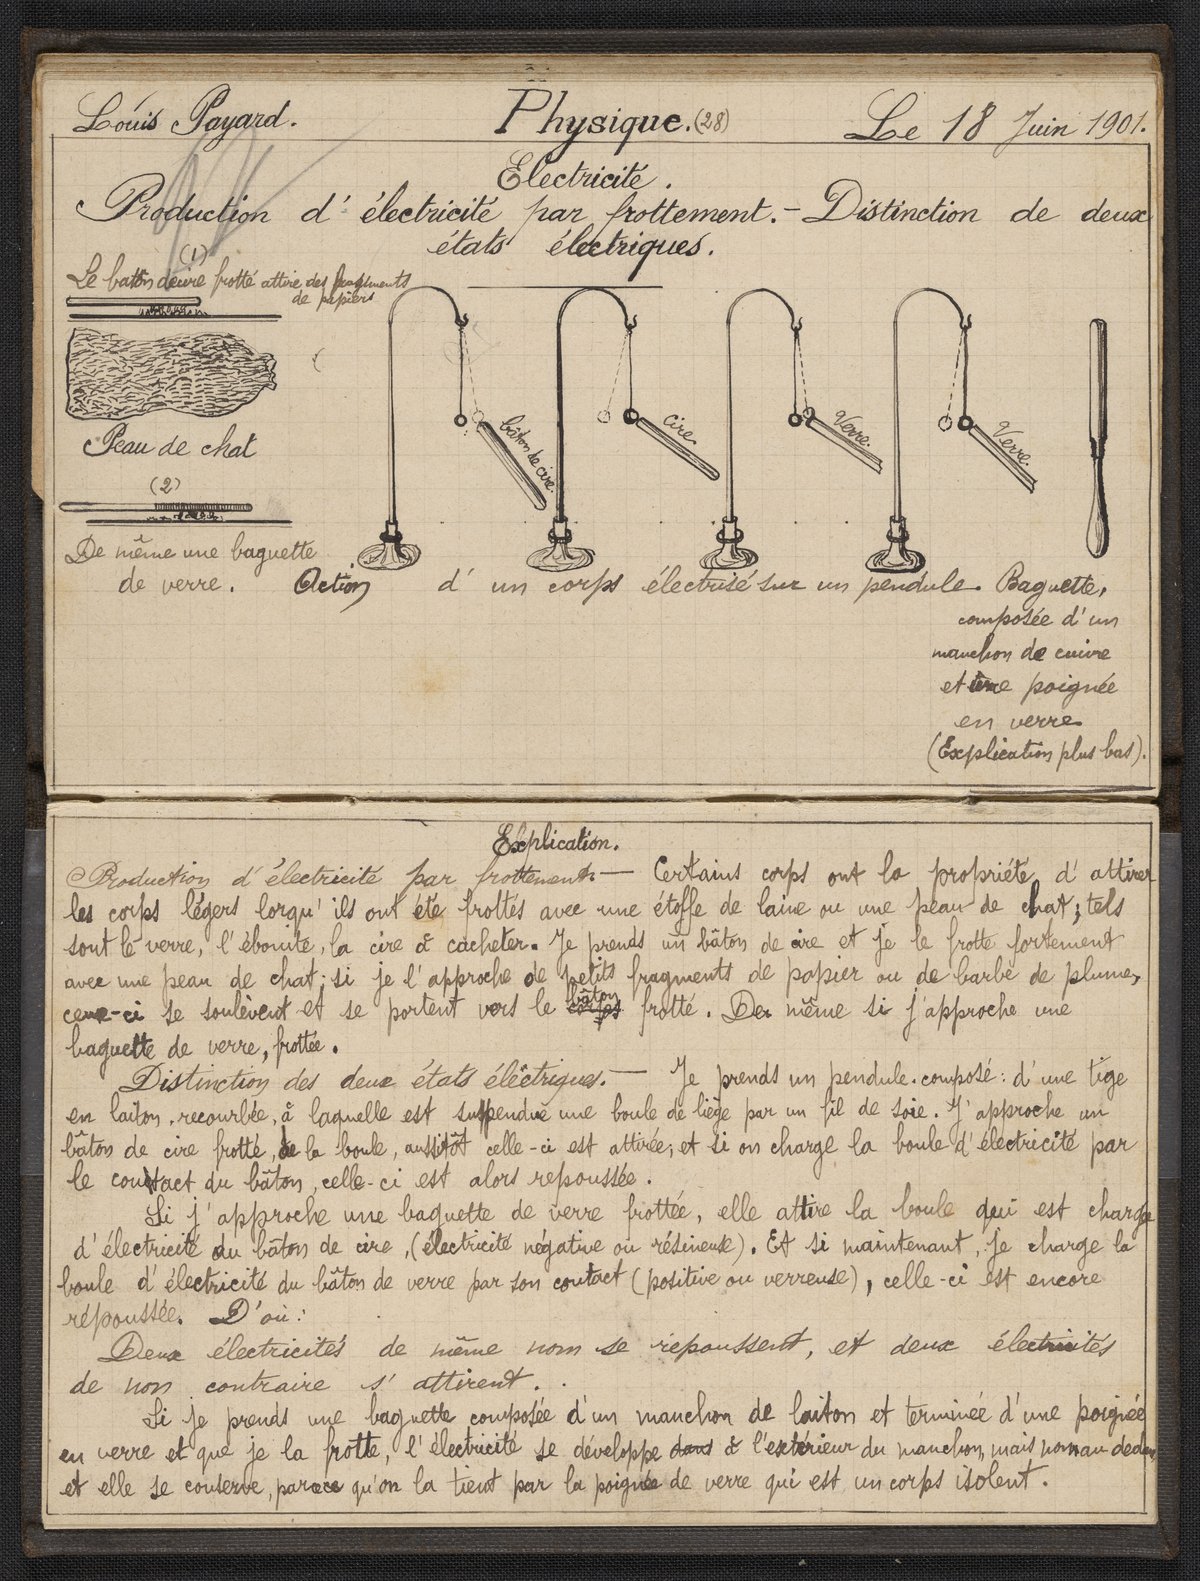 Louis Payard.
Physique. (28)
Le 18 Juin 1901.
Electricité.
Production d'électricité par frottement. – Distinction de deux
états électriques.
(1)
Le batôn de cire frotté attire des fragments
de papiers
Peau de chat
(2)
De même une baguette
de verre.
bâton de cire.
cire
Verre.
Verre.
Action d'un corps électrisé sur un pendule.
Baguette,
composée d'un
manchon de cuivre
et une poignée
en verre
(Explication plus bas).
Explication.
Production d'électricité par frottement. — Certains corps ont la propriété d'attirer
les corps légers lorqu'ils ont été frottés avec une étoffe de laine ou une peau de chat; tels
sont le verre, l'ébonite, la cire à cacheter. Je prends un bâton de cire et je le frotte fortement
avec une peau de chat; si je l'approche de petits fragments de papier ou de barbe de plume,
ceux-ci se soulèvent et se portent vers le corps bâton frotté. De même si j'approche une
baguette de verre, frottée.
Distinction des deux états électriques. — Je prends un pendule composé: d'une tige
en laiton, recourbée, à laquelle est suspendue une boule de liège par un fil de soie. J'approche un
bâton de cire frotté, de la boule, aussitôt celle-ci est attirée; et si on charge la boule d'électricité par
le contact du bâton, celle-ci est alors repoussée.
Si j'approche une baguette de verre frottée, elle attire la boule qui est chargée
d'électricité du bâton de cire, (électricité négative ou résineuse). Et si maintenant, je charge la
boule d'électricité du bâton de verre par son contact (positive ou verreuse), celle-ci est encore
répoussée. D'où:
Deux électricités de même nom se repoussent, et deux électricités
de non contraire s'attirent.
Si je prends une baguette composée d'un manchon de laiton et terminée d'une poignée
en verre et que je la frotte, l'électricité se développe dans à l'extérieur du manchon, mais non au dedans
et elle se conserve, parce qu'on la tient par la poignée de verre qui est un corps isolent.